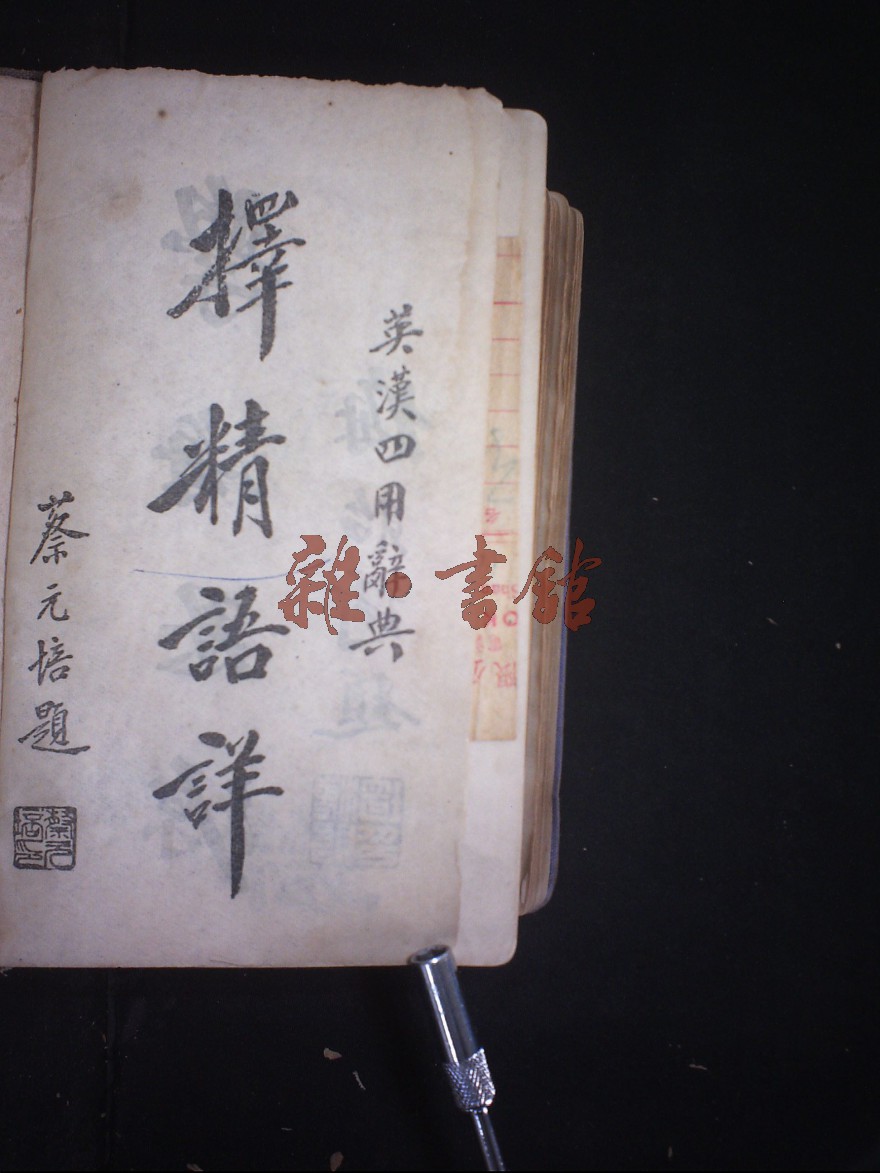 英漢四用辭典
擇精語詳
蔡元培題
蔡元培印
雜·書館